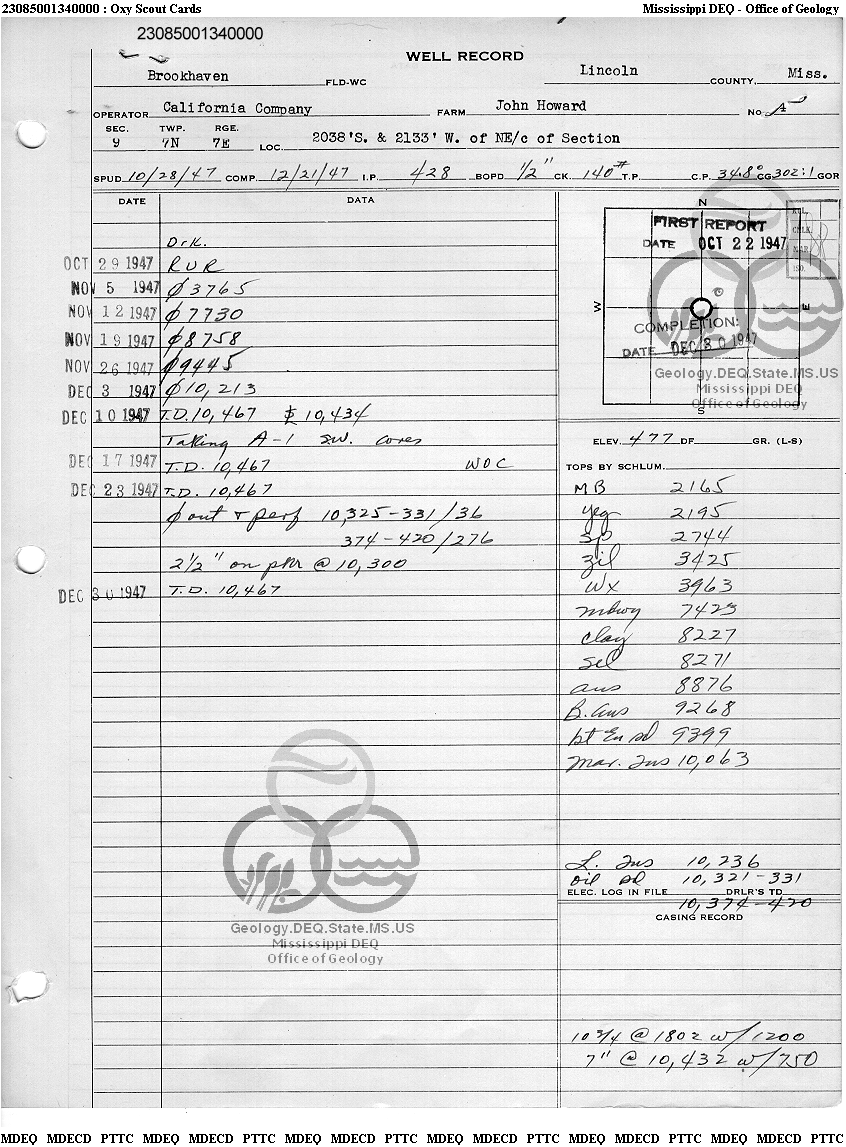 23085001340000 : Oxy Scout Cards Mississippi DEQ - Office of Geology
23085001340000
WELL RECORD
Brookhaven FLD-WC Lincoln COUNTY, Miss.
OPERATOR California Company FARM John Howard No. A
SEC. TWP. RGE.
9 7N 7E LOC. 2038'S. & 2133' W. of NE/c of Section
SPUD 10/28/47 COMP. 12/21/47 I.P. 428 BOPD 1/2" CK. 140# T.P. C.P. 34.8° CG 302:1 GOR
DATE DATA
N
FIRST REPORT
DATE OCT 22 1947
W E
COMPLETION:
DATE DEC 30 1947
Geology.DEQ.State.MS.US
Mississippi DEQ
Office of Geology
S
Drk.
OCT 29 1947 RUR
NOV 5 1947 ∅3765
NOV 12 1947 ∅7730
NOV 19 1947 ∅8758
NOV 26 1947 ∅9445
DEC 3 1947 ∅10,213
DEC 10 1947 T.D. 10,467 10,434
Taking A-1 S.W. cores
DEC 17 1947 T.D. 10,467 WOC
DEC 23 1947 T.D. 10,467
∅ out + perf 10,325-331/36
374-420/276
2 1/2" on pkr @ 10,300
DEC 30 1947 T.D. 10,467
ELEV. 477 DF GR. (L-S)
TOPS BY SCHLUM.
MB 2165
Yeg 2195
Sp 2744
Zil 3425
Wx 3963
mdwy 7423
clay 8227
Sel 8271
aus 8876
B. aus 9268
bt Eu sd 9399
Mar. Tus 10,063
L. Tus 10,236
oil sd 10,321-331
ELEC. LOG IN FILE DRLR'S TD
10,374-420
CASING RECORD
10 3/4 @ 1802 w/1200
7" @ 10,432 w/750
Geology.DEQ.State.MS.US
Mississippi DEQ
Office of Geology
MDEQ MDECD PTTC MDEQ MDECD PTTC MDEQ MDECD PTTC MDEQ MDECD PTTC MDEQ MDECD PTTC MDEQ MDECD PTTC